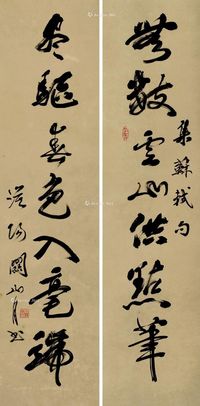 無數雲山供點筆
集蘇軾句
尽驅春色入毫端
漠陽關山月